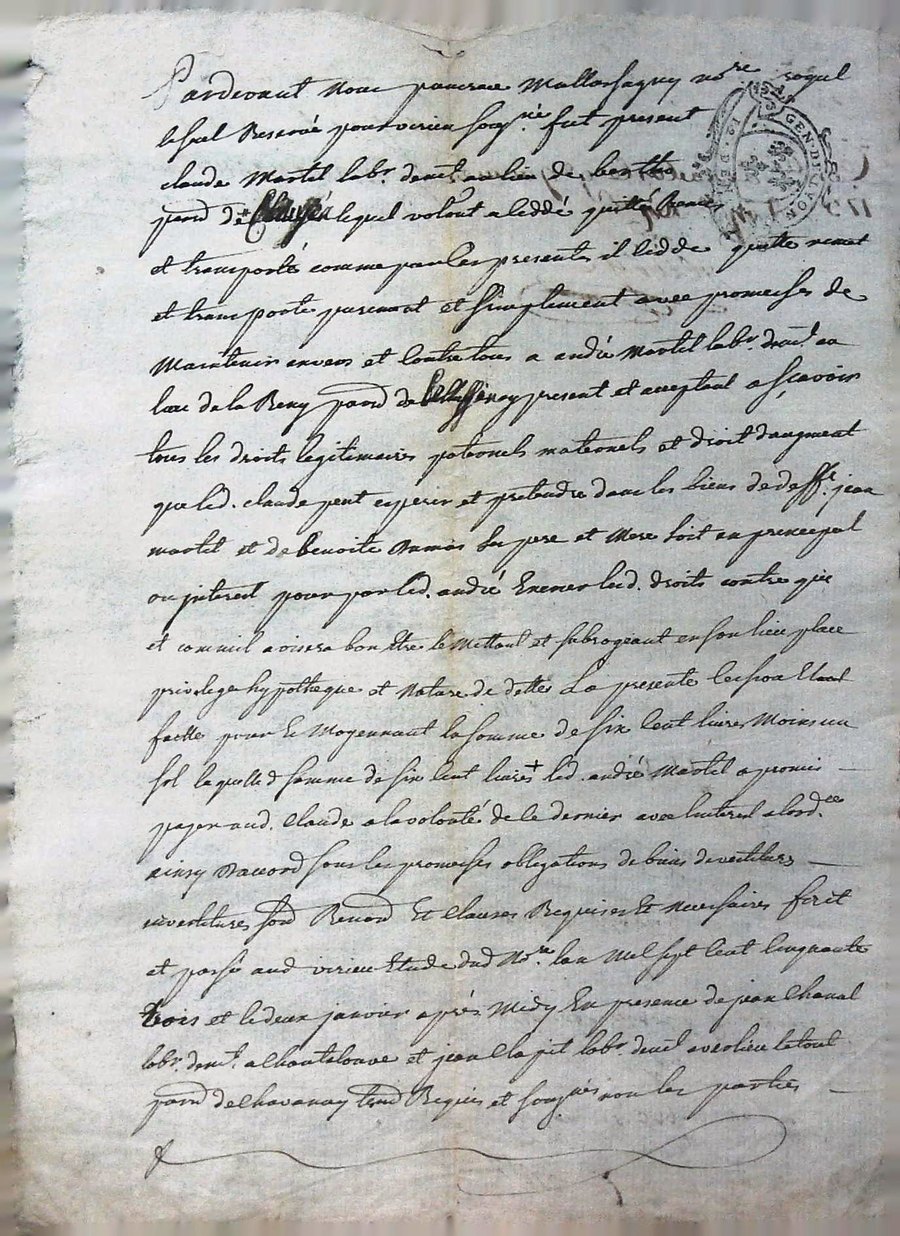 Pardevant Nous pancrace Mallassagny no.re royal
Reservé pour virieu soug.né fut present
claude Martel lab.r dem.t au lieu de
parr. de lequel volont.t a ceddé quitté Remis
et transporté comme par les presentes il cedde quitte remet
et transporte purement et simplement avec promesses de
Maintenir envers et contre tous a andré Martel lab.r dem.t au
lieu de la Beny parr. de present et acceptant a sçavoir
tous les droits legitimaires paternels maternels et droit daugment
que led. claude peut esperer et pretendre dans les biens de deff.t jean
martel et de benoite Dumas ses pere et Mere soit en principal
ou interest pour par led. andré Exercer lesd. droits contre qui
et comme il avisera bon Etre le Mettant et subrogeant en son lieu place
privilege hypotheque et Nature de dettes La presente cession Etant
faitte pour Et Moyennant la somme de six Cent livres Moins un
sol laquelle d. somme de six Cent livres + led. andré Martel a promis
payer aud. Claude a la volonté de ce dernier avec linterest a lord.ce
ainsy Daccord sous les promesses obligations de biens devestitures
investitures Et Clauses Requises Et Necessaires fait
et passé aud virieu Etude dud No.re lan Mil sept Cent Cinquante
trois et le deux janvier après Midy En presence de jean Chaval
lab.r dem.t a Chantelouve et jean Clapit lab.r dem.t
parr. de Chavanay Requis et soug.nés non les parties